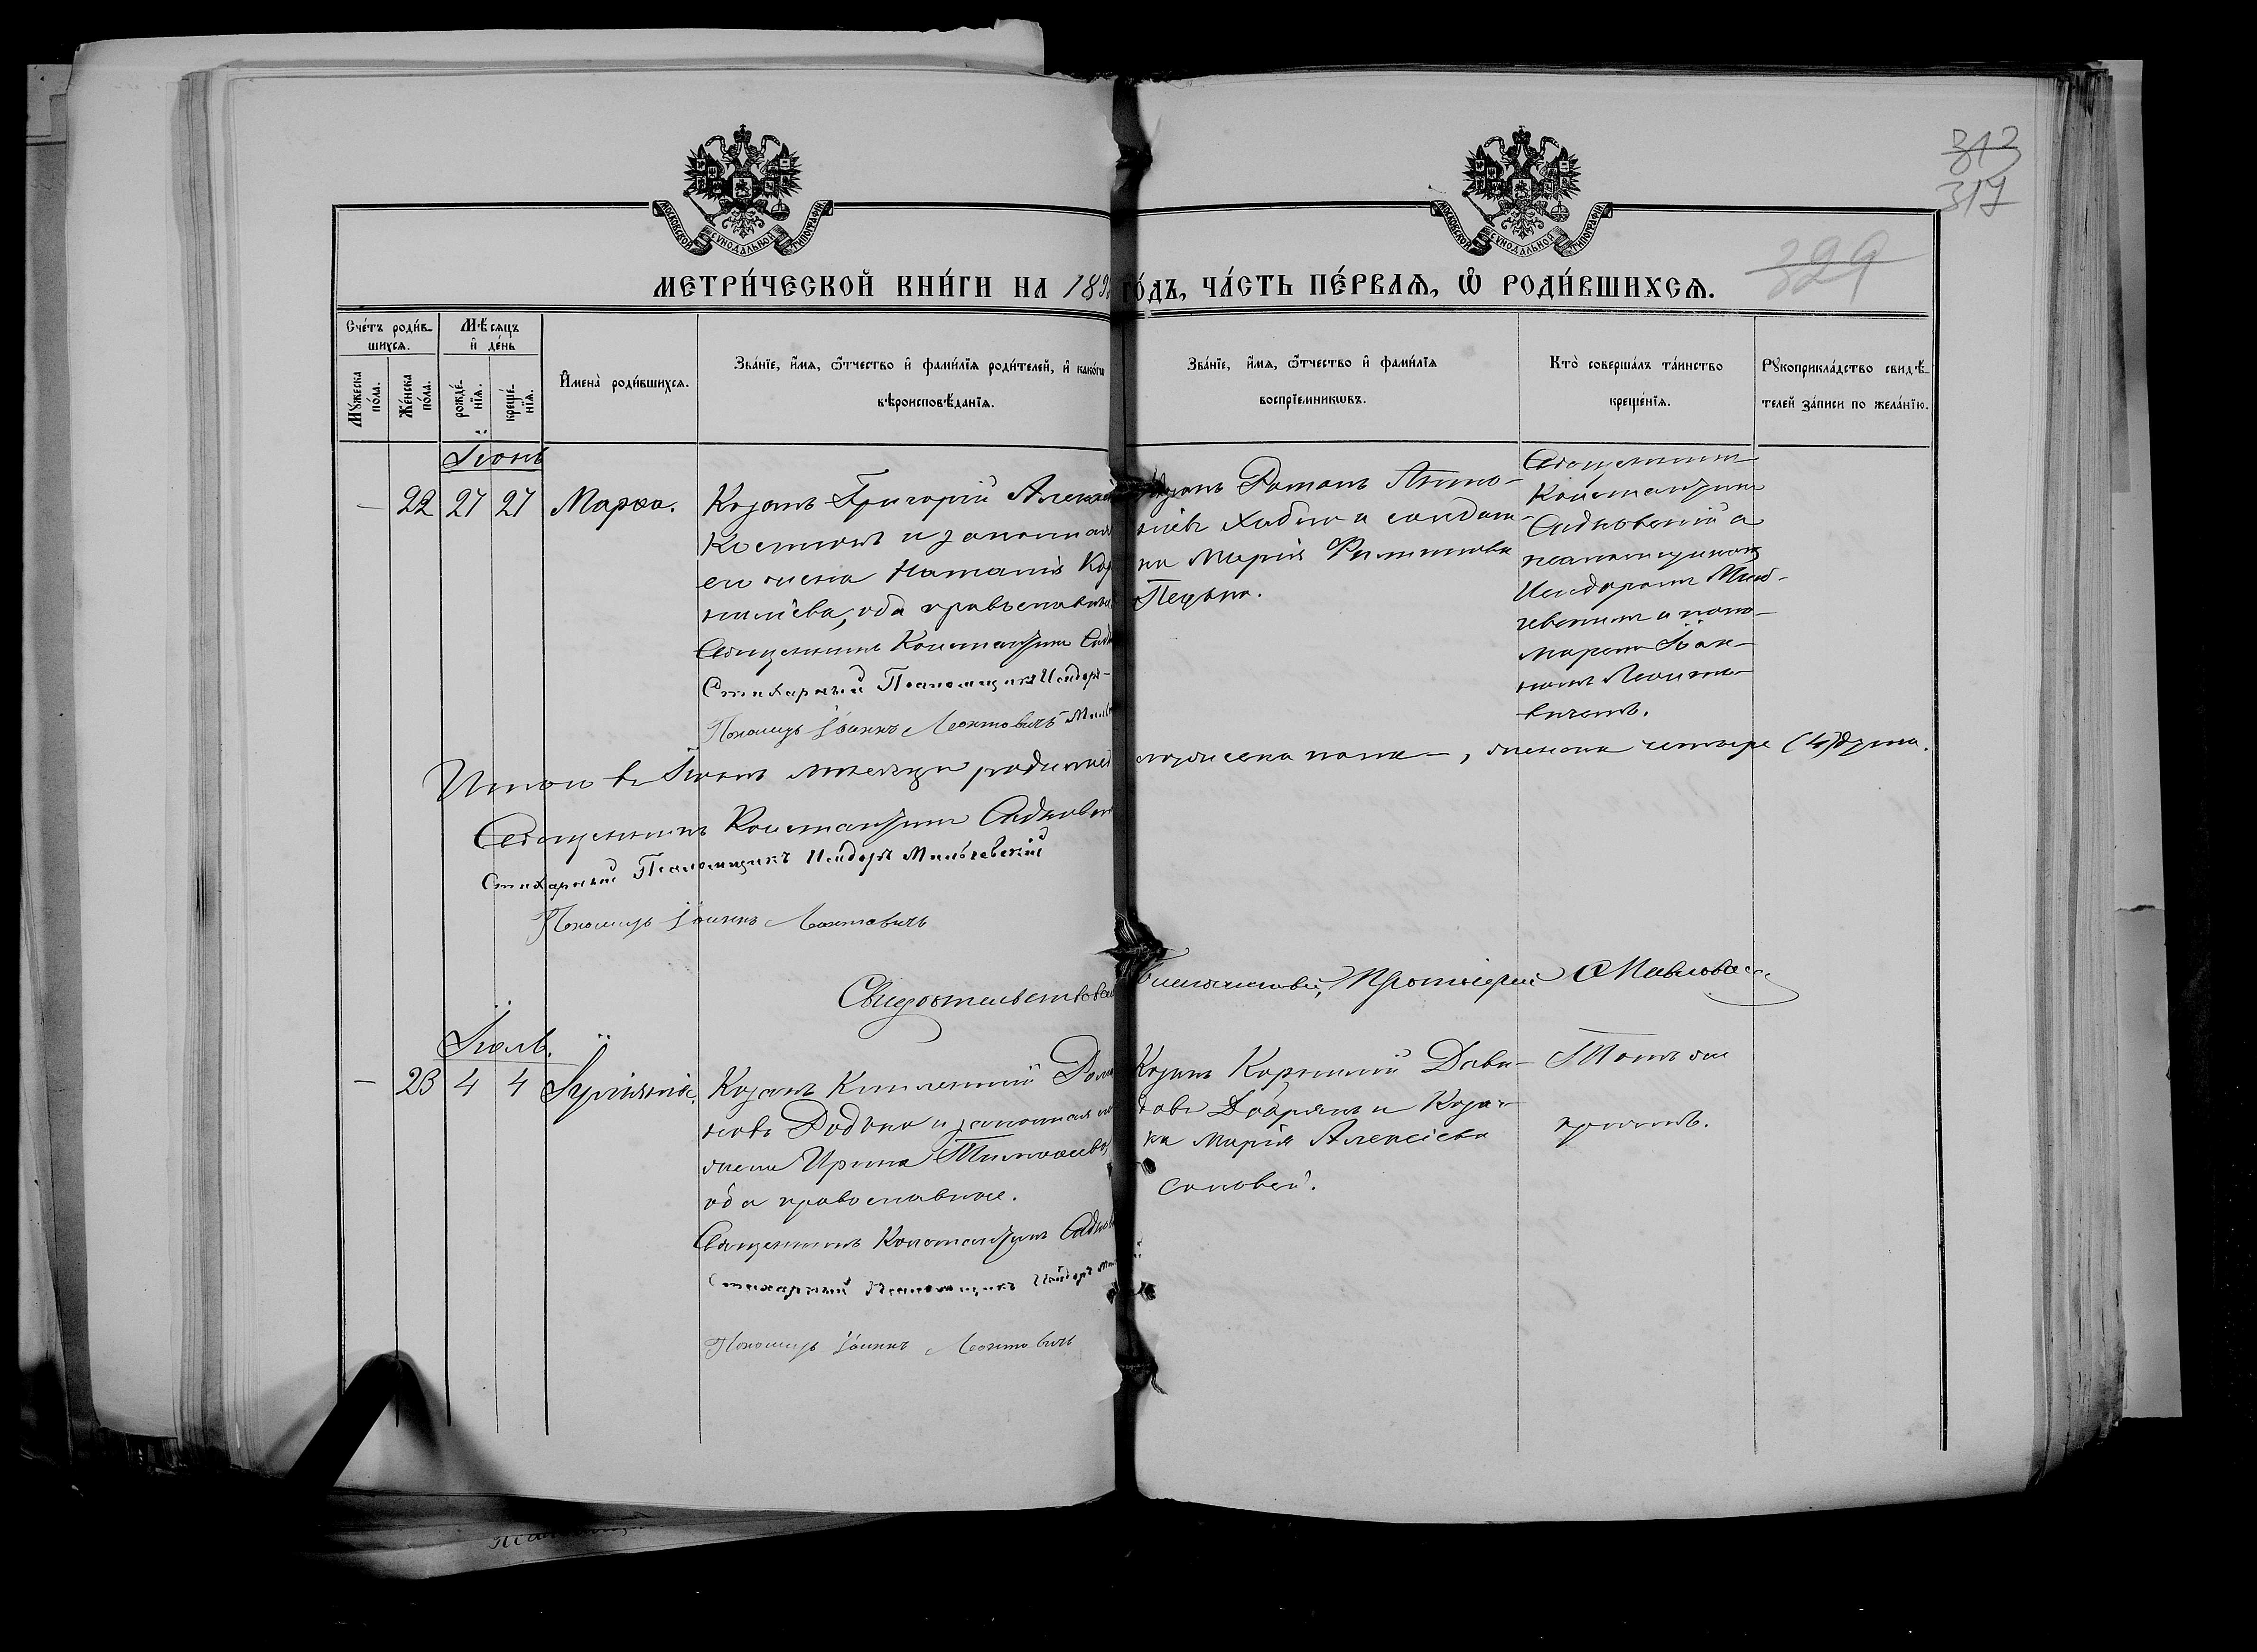 313
317
329
МОСКОВСКОЙ СѴНОДАЛЬНОЙ ТИПОГРАФІИ
МОСКОВСКОЙ СѴНОДАЛЬНОЙ ТИПОГРАФІИ
МЕТРИ́ЧЕСКОЙ КНИ́ГИ НА 189 ГО́ДЪ, ЧА́СТЬ ПЕ́РВАѦ, Ѡ҆ РОДИ́ВШИХСѦ.
Сче́тъ роди́в-
шихсѧ.
Мꙋ́жеска по́ла.
Же́нска по́ла.
Мѣ́сѧцъ
и҆ де́нь
рожде́-
нїѧ.
креще́-
нїѧ.
И҆мена̀ роди́вшихсѧ.
Зва́нїе, и҆́мѧ, ѻ҆́тчество и҆ фами́лїѧ роди́телей, и҆ како́гѡ
вѣроисповѣ́данїѧ.
Зва́нїе, и҆́мѧ, ѻ҆́тчество и҆ фами́лїѧ
воспрїе́мникѡвъ.
Кто̀ соверша́лъ та́инство
креще́нїѧ.
Рꙋкоприкла́дство свидѣ́-
телей за́писи по жела́нїю.
Іюнь
— 22 27 27 Марѳа.
Козакъ Григорій Алексѣ
и законная
его жена Наталія Кор
ниліева, оба православные
Священникъ Константинъ Садк
Стихарный Псаломщикъ Исидоръ
Пономарь Іоаннъ Леонтовичъ
Козакъ Романъ Анто-
ніевъ и солдат-
ка Марія Филиппова
Священникъ
Константинъ
Садковскій съ
псаломщикомъ
Исидоромъ Миль-
чевскимъ и поно-
маремъ Іоан-
номъ Леонто-
вичемъ.
Итого въ Іюнѣ мѣсяцѣ родилось мужеска пола —, женска четыре (4) души.
Священникъ Константинъ Садковскій
Стихарный Псаломщикъ Исидоръ Мильчевскій
Пономарь Іоаннъ Леонтовичъ
Свидетельствовалъ Благочинный, Протоіерей
Іюль.
— 23 4 4 Іуліанія.
Козакъ Климентій Рома
новъ Радько и законная его
жена Ирина Тимоѳеева,
оба православные.
Священникъ Константинъ Садков
Стихарный Псаломщикъ Исидоръ Ми
Пономарь Іоаннъ Леонтовичъ
Козакъ Корнилій Дави-
довъ Добрянъ и Козач-
ка Марія Алексіева
Соловей.
Тотъ же
причтъ.